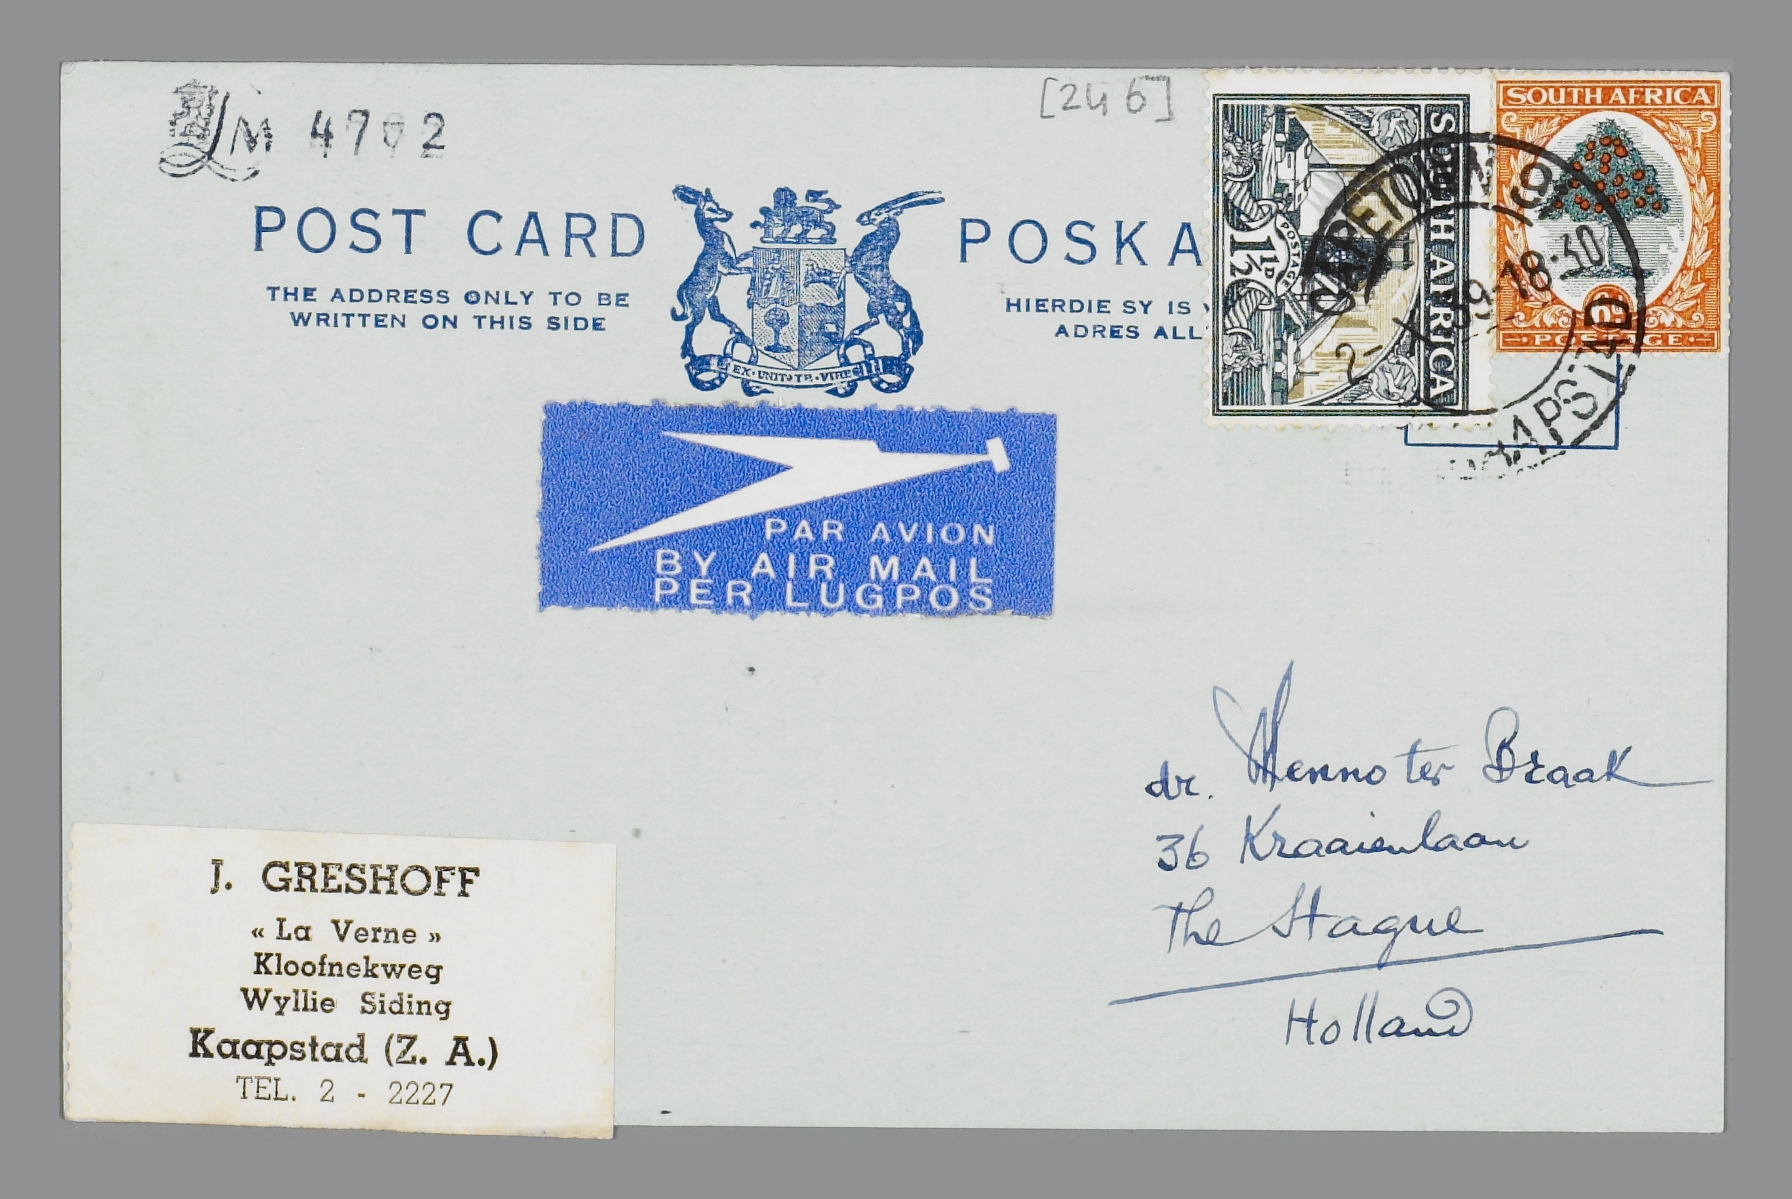 LM 4702
[246]
POST CARD
POSKA
THE ADDRESS ONLY TO BE
WRITTEN ON THIS SIDE
HIERDIE SY IS
ADRES ALL
EX·UNITATE·VIRES
SOUTH AFRICA
POSTAGE
1½D
SOUTH AFRICA
6D
POSTAGE
CAPETOWN
39-18·30
2-
KAAPSTAD
PAR AVION
BY AIR MAIL
PER LUGPOS
dr. Menno ter Braak
36 Kraaienlaan
The Hague
Holland
J. GRESHOFF
« La Verne »
Kloofnekweg
Wyllie Siding
Kaapstad (Z. A.)
TEL. 2 - 2227